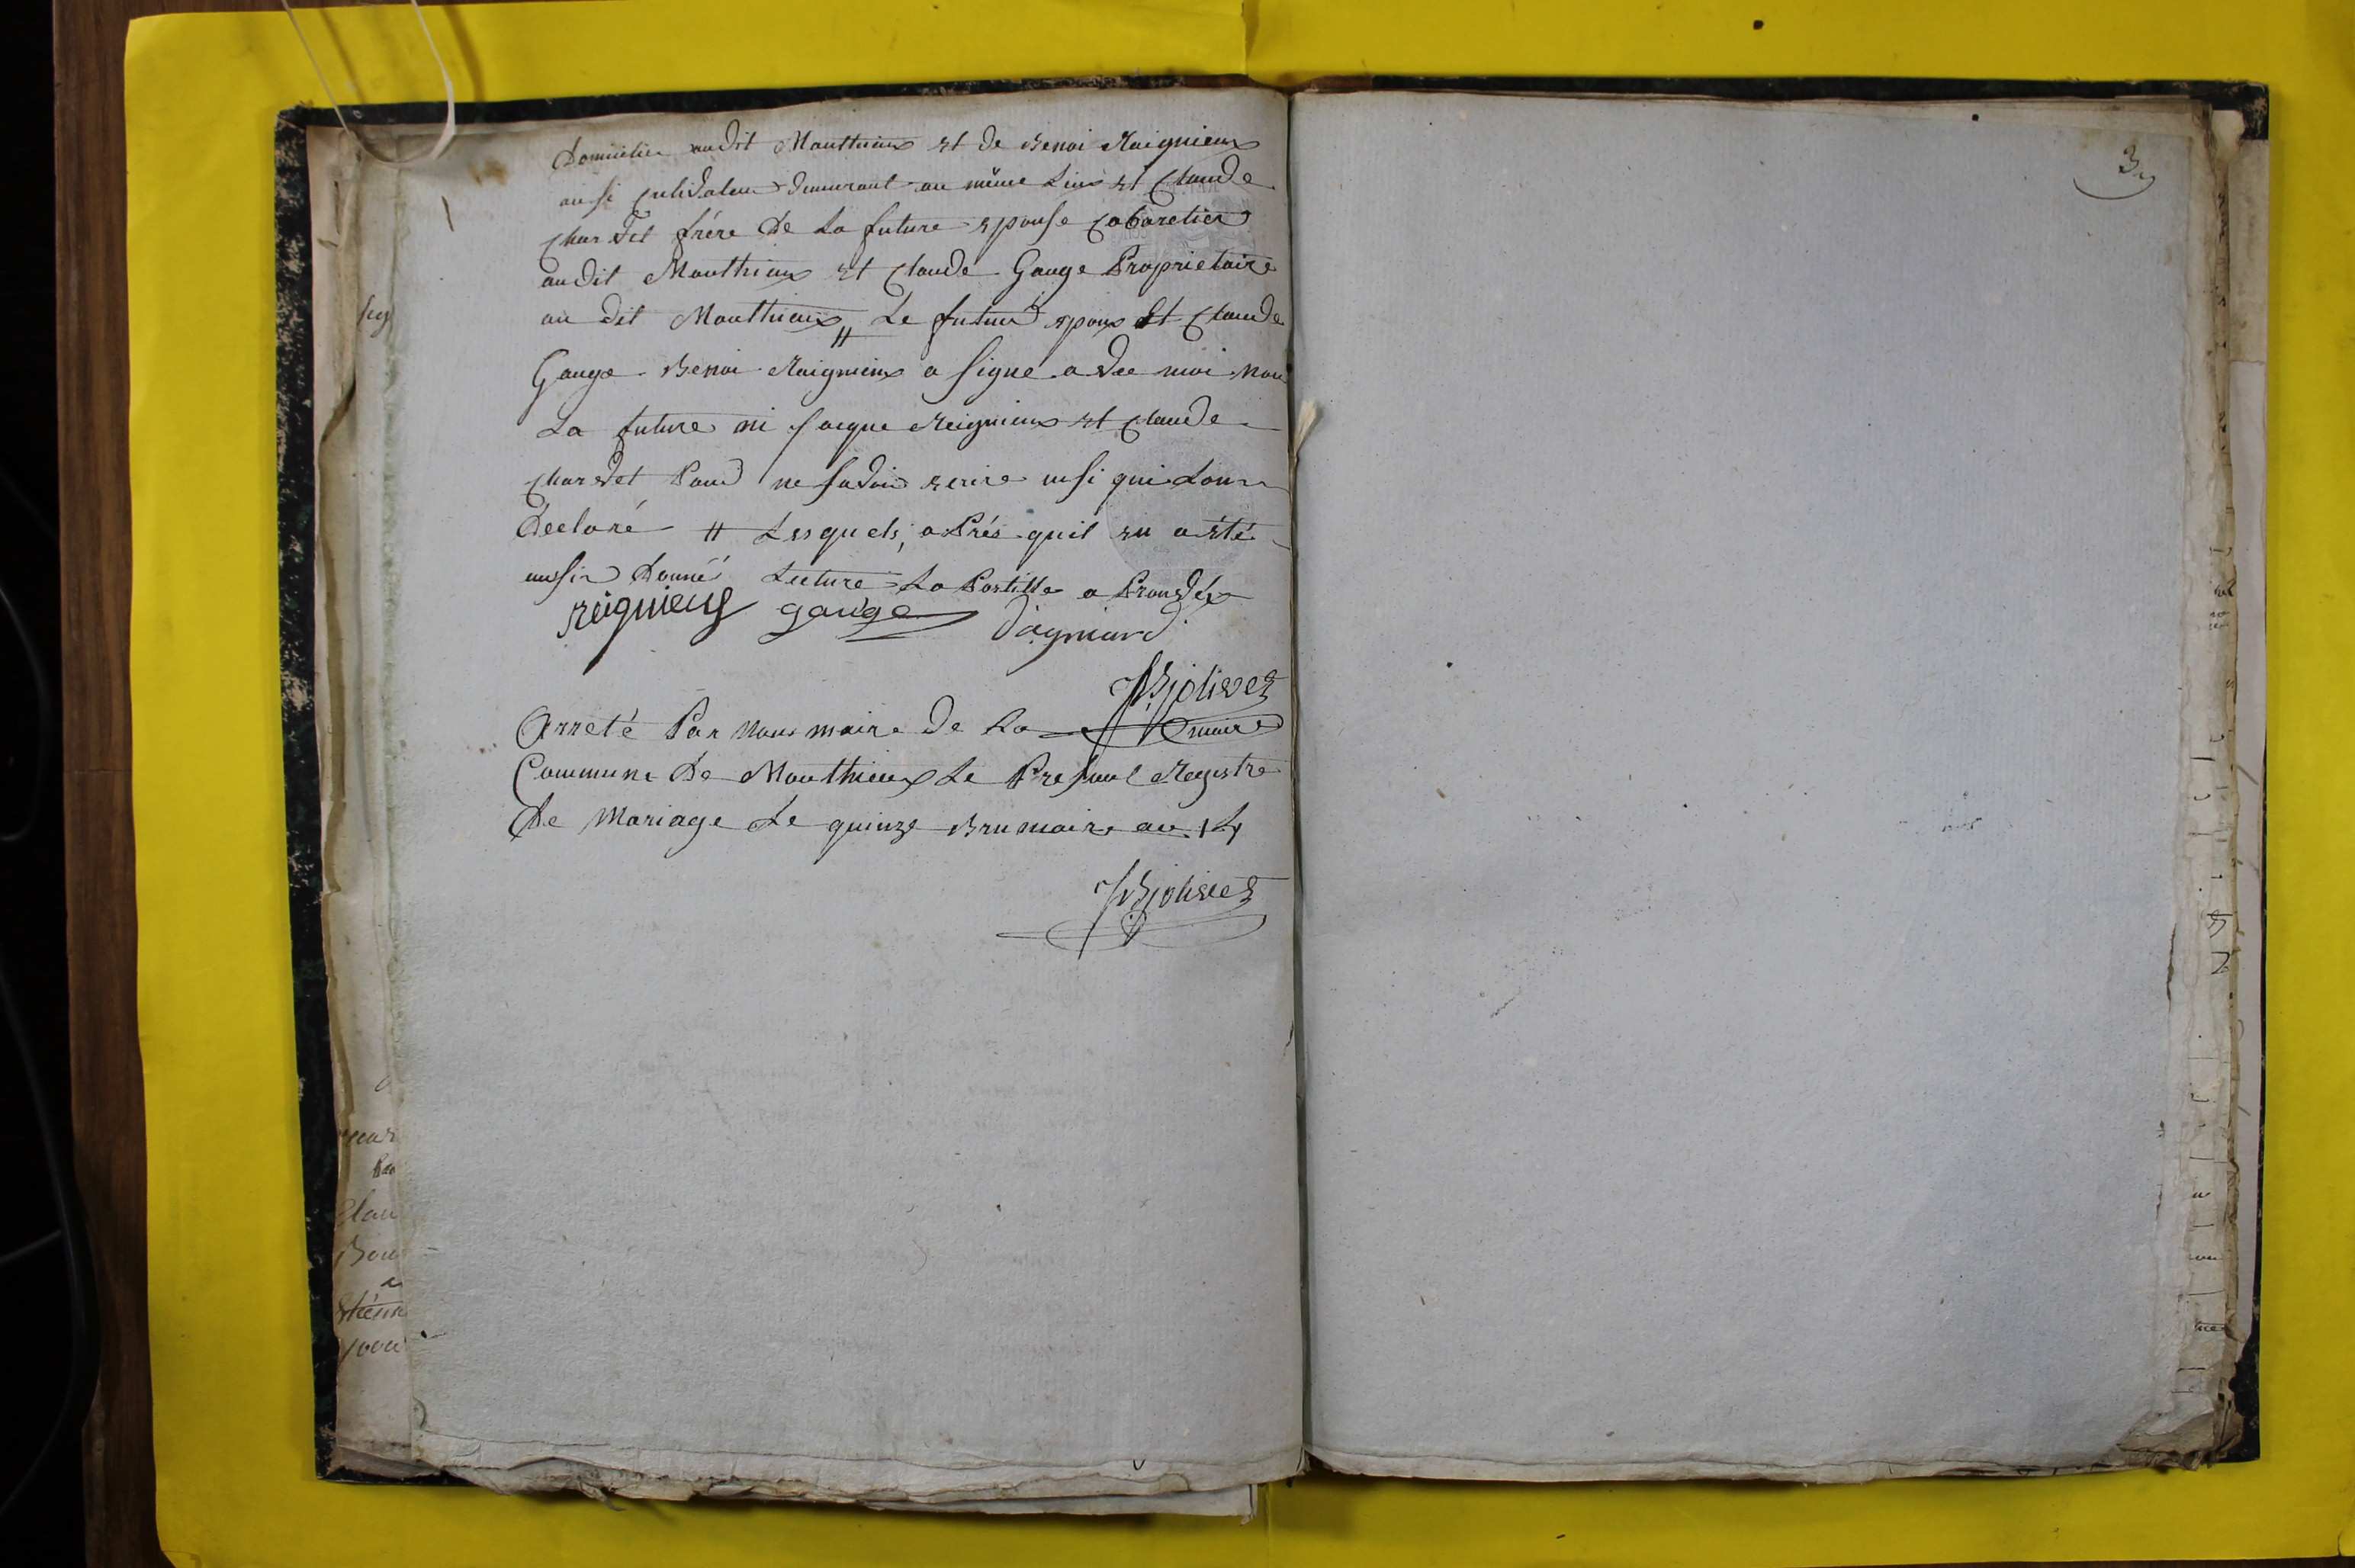 Domicilie audit Monthieux et de Benoi Raignieux
ausi cultivateur demeurant au même Lieu et Claude
Chardet frére de La future epouse Cabaretier
audit Monthieux et Claude Gouge Proprietaire
au dit Monthieux // Le futur epoux et Claude
Gouge Benoi Raignieux a signé avec moi non
La future ni Jacque Reignieux et Claude
Chardet Pour ne savoir ecrire insi qui Lon
declaré // Lesquels, aPrés quil en a été
ausi donné Lecture La Postille a Prouvéx
reignieux gouge daymard
JBjolivet
maire
Arreté Par nous maire de La
Commune de Monthieux Le Present Registre
De Mariage Le quinze Brumaire an 14
JBjolivet
3